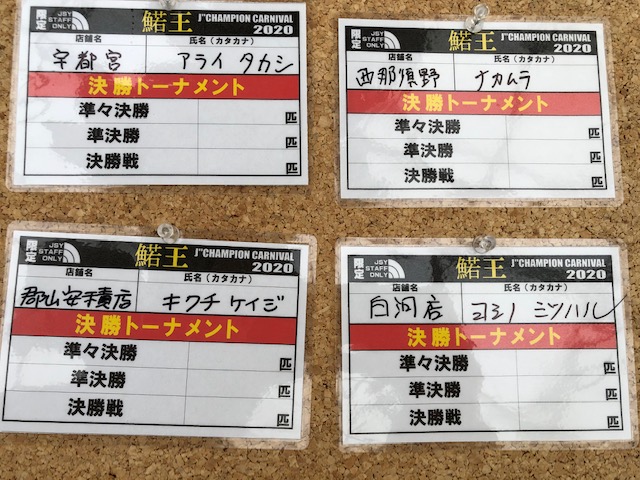 限定 JSY STAFF ONLY 鰙王 J"CHAMPION CARNIVAL 2020
店舗名 氏名（カタカナ）
宇都宮 アライ タカシ
決勝トーナメント
準々決勝 匹
準決勝 匹
決勝戦 匹
限定 JSY STAFF ONLY 鰙王 J"CHAMPION CARNIVAL 2020
店舗名 氏名（カタカナ）
西那須野 ナカムラ
決勝トーナメント
準々決勝 匹
準決勝 匹
決勝戦 匹
限定 JSY STAFF ONLY 鰙王 J"CHAMPION CARNIVAL 2020
店舗名 氏名（カタカナ）
郡山安積店 キクチ ケイジ
決勝トーナメント
準々決勝 匹
準決勝 匹
決勝戦 匹
限定 JSY STAFF ONLY 鰙王 J"CHAMPION CARNIVAL 2020
店舗名 氏名（カタカナ）
白河店 ヨシノ ミツハル
決勝トーナメント
準々決勝 匹
準決勝 匹
決勝戦 匹